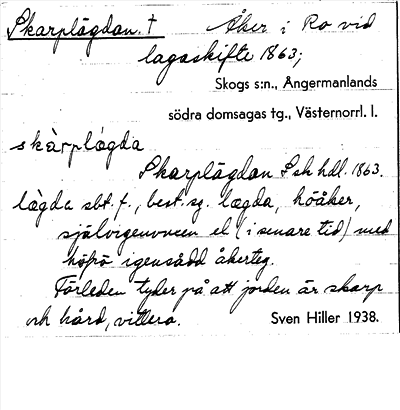 Skarplägdan. † Åker i Ro vid
lagaskifte 1863;
Skogs s:n., Ångermanlands
södra domsagas tg., Västernorrl. l.
skàrplägda
Skarplägdan Lsk hdl. 1863.
lägda sbt. f., best. sg. lægda, höåker,
självigenvuxen el (i senare tid) med
höfrö igensådd åkerteg.
Förleden tyder på att jorden är skarp
och hård,
Sven Hiller 1938.